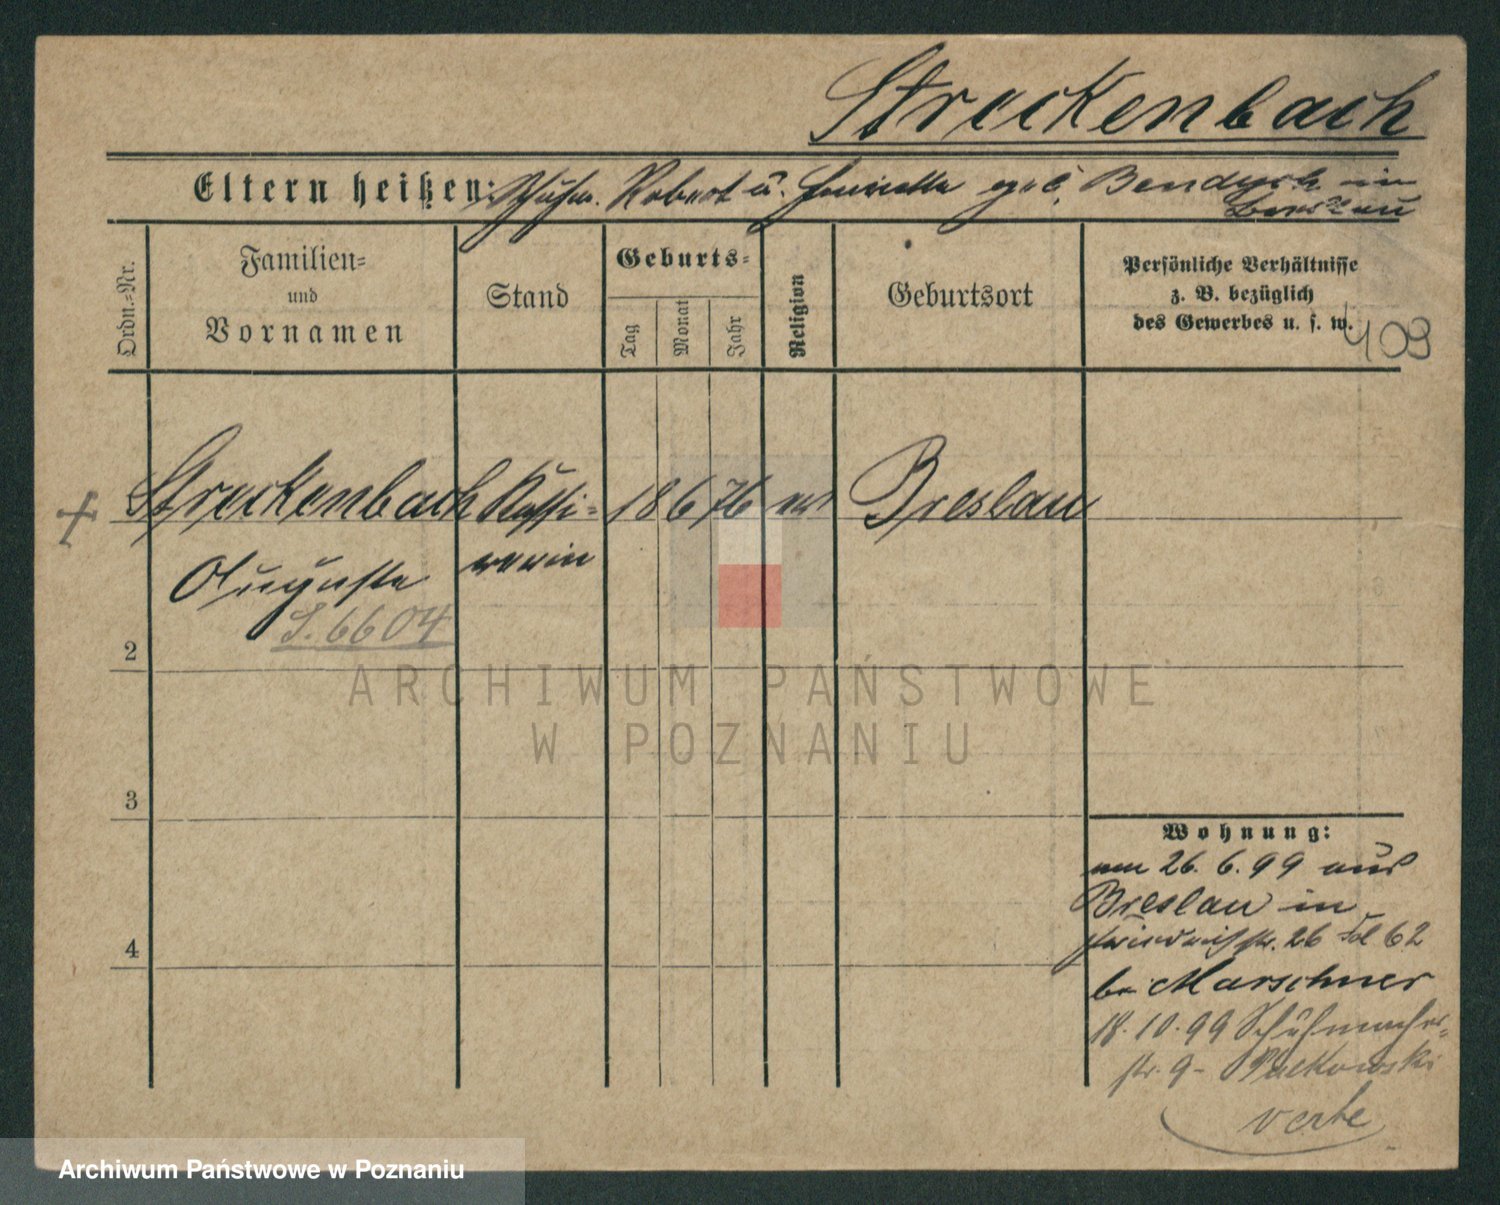 Streckenbach
Eltern heißen: Schuhm. Robert u. Henriette geb. Bendusch in
Breslau
Ordn.-Nr.
Familien-
und
Vornamen
Stand
Geburts-
Tag
Monat
Jahr
Religion
Geburtsort
Persönliche Verhältnisse
z. B. bezüglich
des Gewerbes u. s. w.
409
Streckenbach Kassi- 18 6 76 ev Breslau
Auguste rerin
S. 6604
2
3
4
Wohnung:
am 26. 6. 99 aus
Breslau in
str. 26 62
bei Marschner
18. 10. 99 Schuhmacher-
str. 9 -
verte
ARCHIWUM PAŃSTWOWE
W POZNANIU
Archiwum Państwowe w Poznaniu